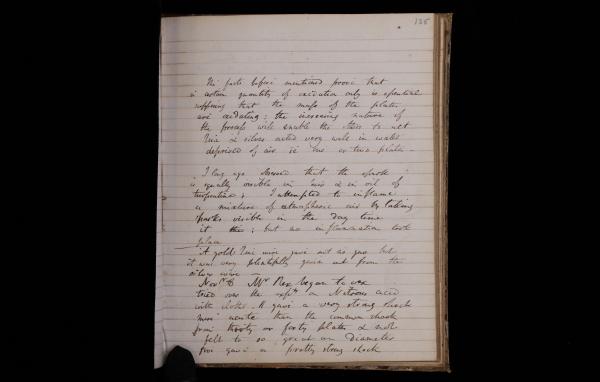 135
The facts before mentioned prove that
a certain quantity of oxidation only is essential
supposing that the mass of the plates
are oxidating; the increasing nature of
the process will enable the others to act
Zinc & silver acted very well in water
deprived of air in one or two plates –
I long ago observed that the spark
is equally visible in and in oil of
turpentine; I attempted to inflame
a mixture of atmospheric air by taking
sparks visible in the day time
it but no inflammation took
place
A gold Zinc wire gave out no gas but
it was very plentifully given out from the
silver wire –
Novr 6 Mr began to
tried over the expts on Nitrous acid
with cloths. It gave a very strong shock
more acute than the common shock
from thirty or forty plates & not
felt to so great an Diameter
five gave a pretty strong shock